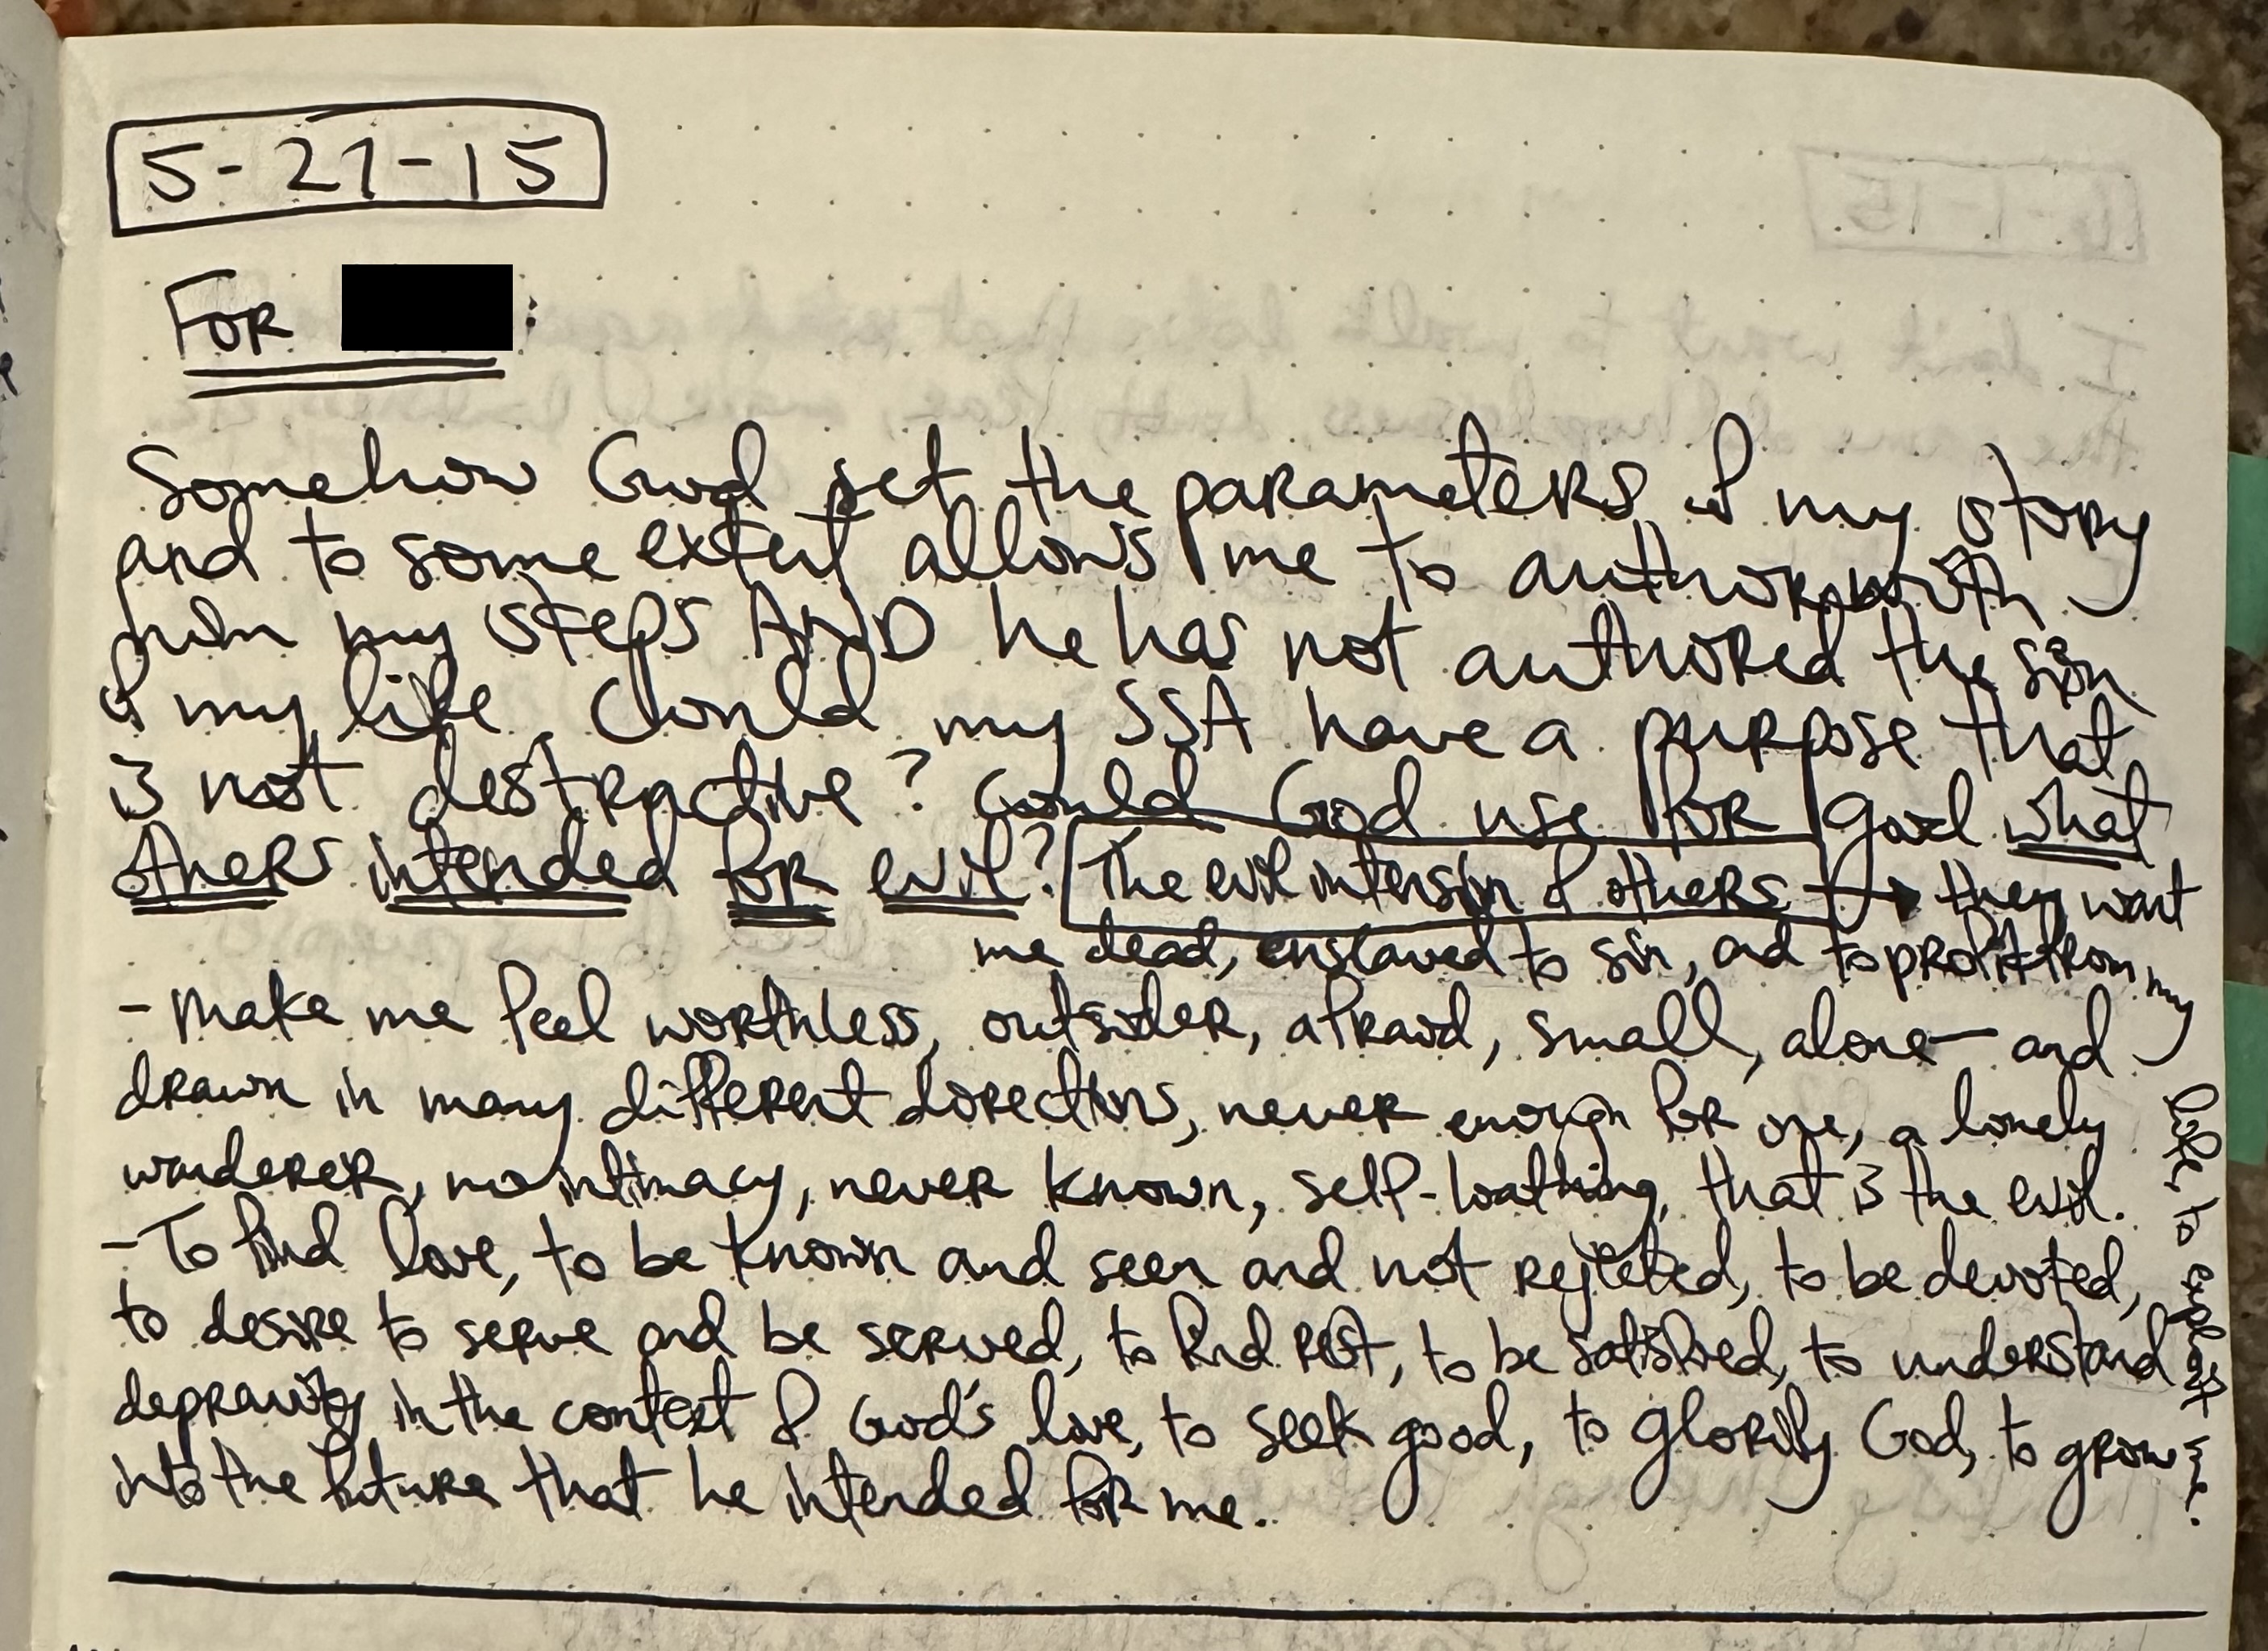 5-27-15
FOR :
Somehow God set the parameters of my story
and to some extent allows me to author with
him my steps AND he has not authored the sin
of my life. Could my SSA have a purpose that
is not destructive? Could God use for good what
others intended for evil? The evil intension of others → they want
me dead, enslaved to sin, and to profit from my
life, to exploit me.
- make me feel worthless, outsider, afraid, small, alone - and
drawn in many different directions, never enough for one, a lonely
wanderer, no intimacy, never known, self-loathing, that is the evil.
- To find love, to be known and seen and not rejected, to be devoted,
to desire to serve and be served, to find rest, to be satisfied, to understand
depravity in the context of God's love, to seek good, to glorify God, to grow
into the future that he intended for me.